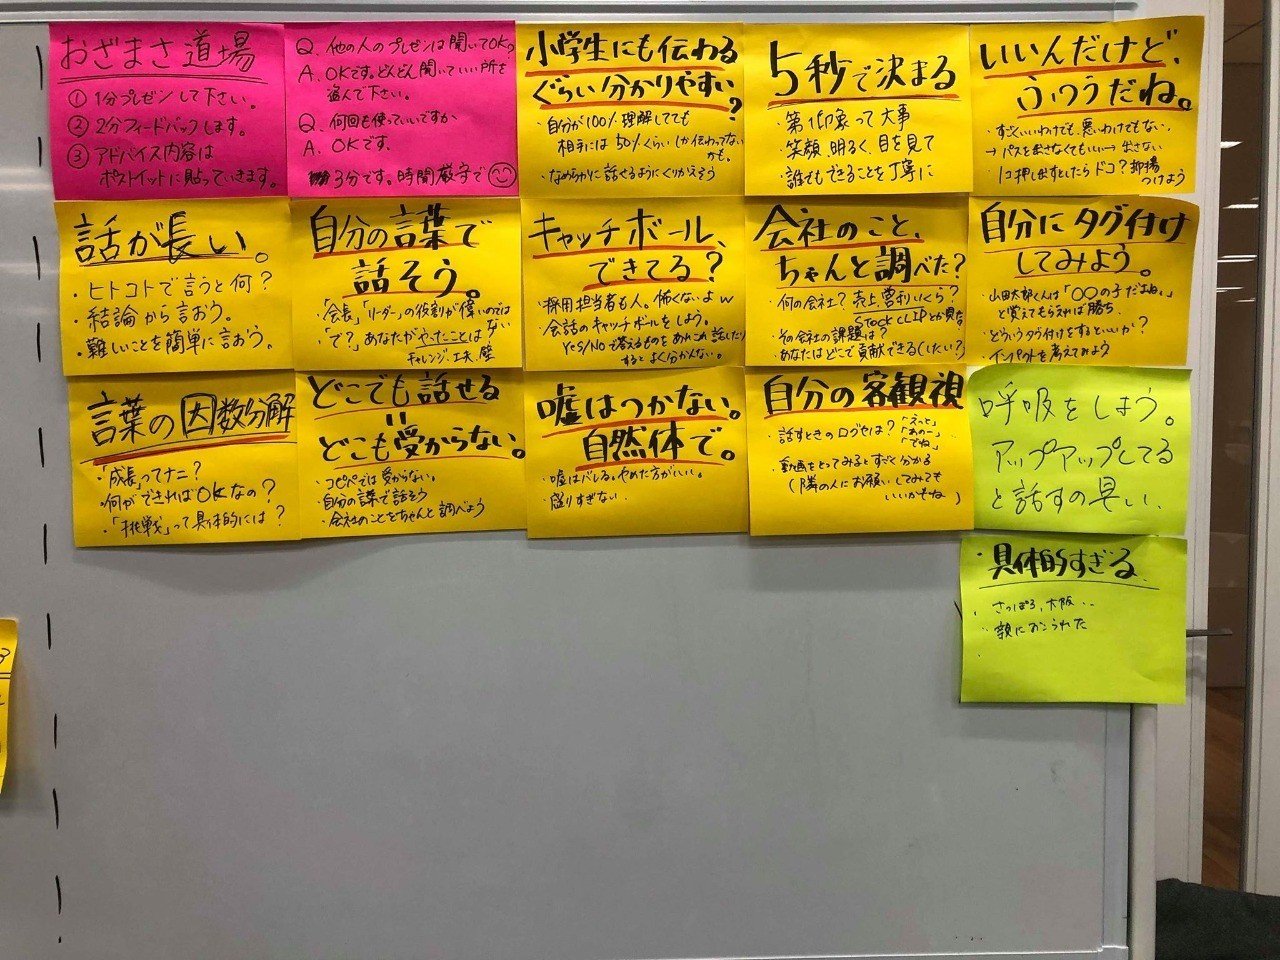 おざまさ道場
① 1分プレゼンして下さい。
② 2分フィードバックします。
③ アドバイス内容は
ポストイットに貼っていきます。
Q. 他の人のプレゼンは聞いてOK?
A. OKです。どんどん聞いていい所を
盗んで下さい。
Q. 何回も使っていいですか
A. OKです。
3分です。時間厳守で
小学生にも伝わる
ぐらい分かりやすい
?
・自分が100%理解してても
相手には50%くらいしか伝わってない
かも。
・なめらかに話せるようにくりかえそう
5秒で決まる
・第一印象って大事
・笑顔、明るく、目を見て
・誰でもできることを丁寧に
いいんだけど、
ふつうだね。
・すごくいいわけでも、悪いわけでもない。
→パスを出さなくてもいい→出さない
・1コ押し出すとしたらドコ?抑揚
つけよう
話が長い。
・ヒトコトで言うと何?
・結論から言おう。
・難しいことを簡単に言おう。
自分の言葉で
話そう。
・「会長」「リーダー」の役割が偉いのでは
ない
・「で?」あなたがやったことは?
チャレンジ、工夫、壁
キャッチボール、
できてる?
・採用担当者も人。怖くないよw
・会話のキャッチボールをしよう。
Yes/Noで答えるものをあれこれ話したり
するとよく分かんない。
会社のこと、
ちゃんと調べた?
・何の会社?売上、営利いくら?
Stock CLIPとか見な
・その会社の課題は?
・あなたはどこで貢献できる(したい?)
自分にタグ付け
してみよう。
・山田太郎くんは「〇〇の子だよね。」
と覚えてもらえれば勝ち。
・どういうタグ付けをするといいか?
・インパクトを考えてみよう
言葉の因数分解
・「成長」ってナニ?
・何ができればOKなの?
・「挑戦」って具体的には?
どこでも話せる
=
どこも受からない。
・コピペでは受からない。
・自分の言葉で話そう
・会社のことをちゃんと調べよう
嘘はつかない。
自然体で。
・嘘はバレる。やめた方がいい。
・盛りすぎない
自分の客観視
・話すときの口グセは?「えっと」
「あのー」
「でね」
・動画をとってみるとすごく分かる
(隣の人にお願いしてみても
いいかもね)
呼吸をしよう。
アップアップしてる
と話すの臭い、
・具体的すぎる
・さっぽろ、大阪..
・親におこられた